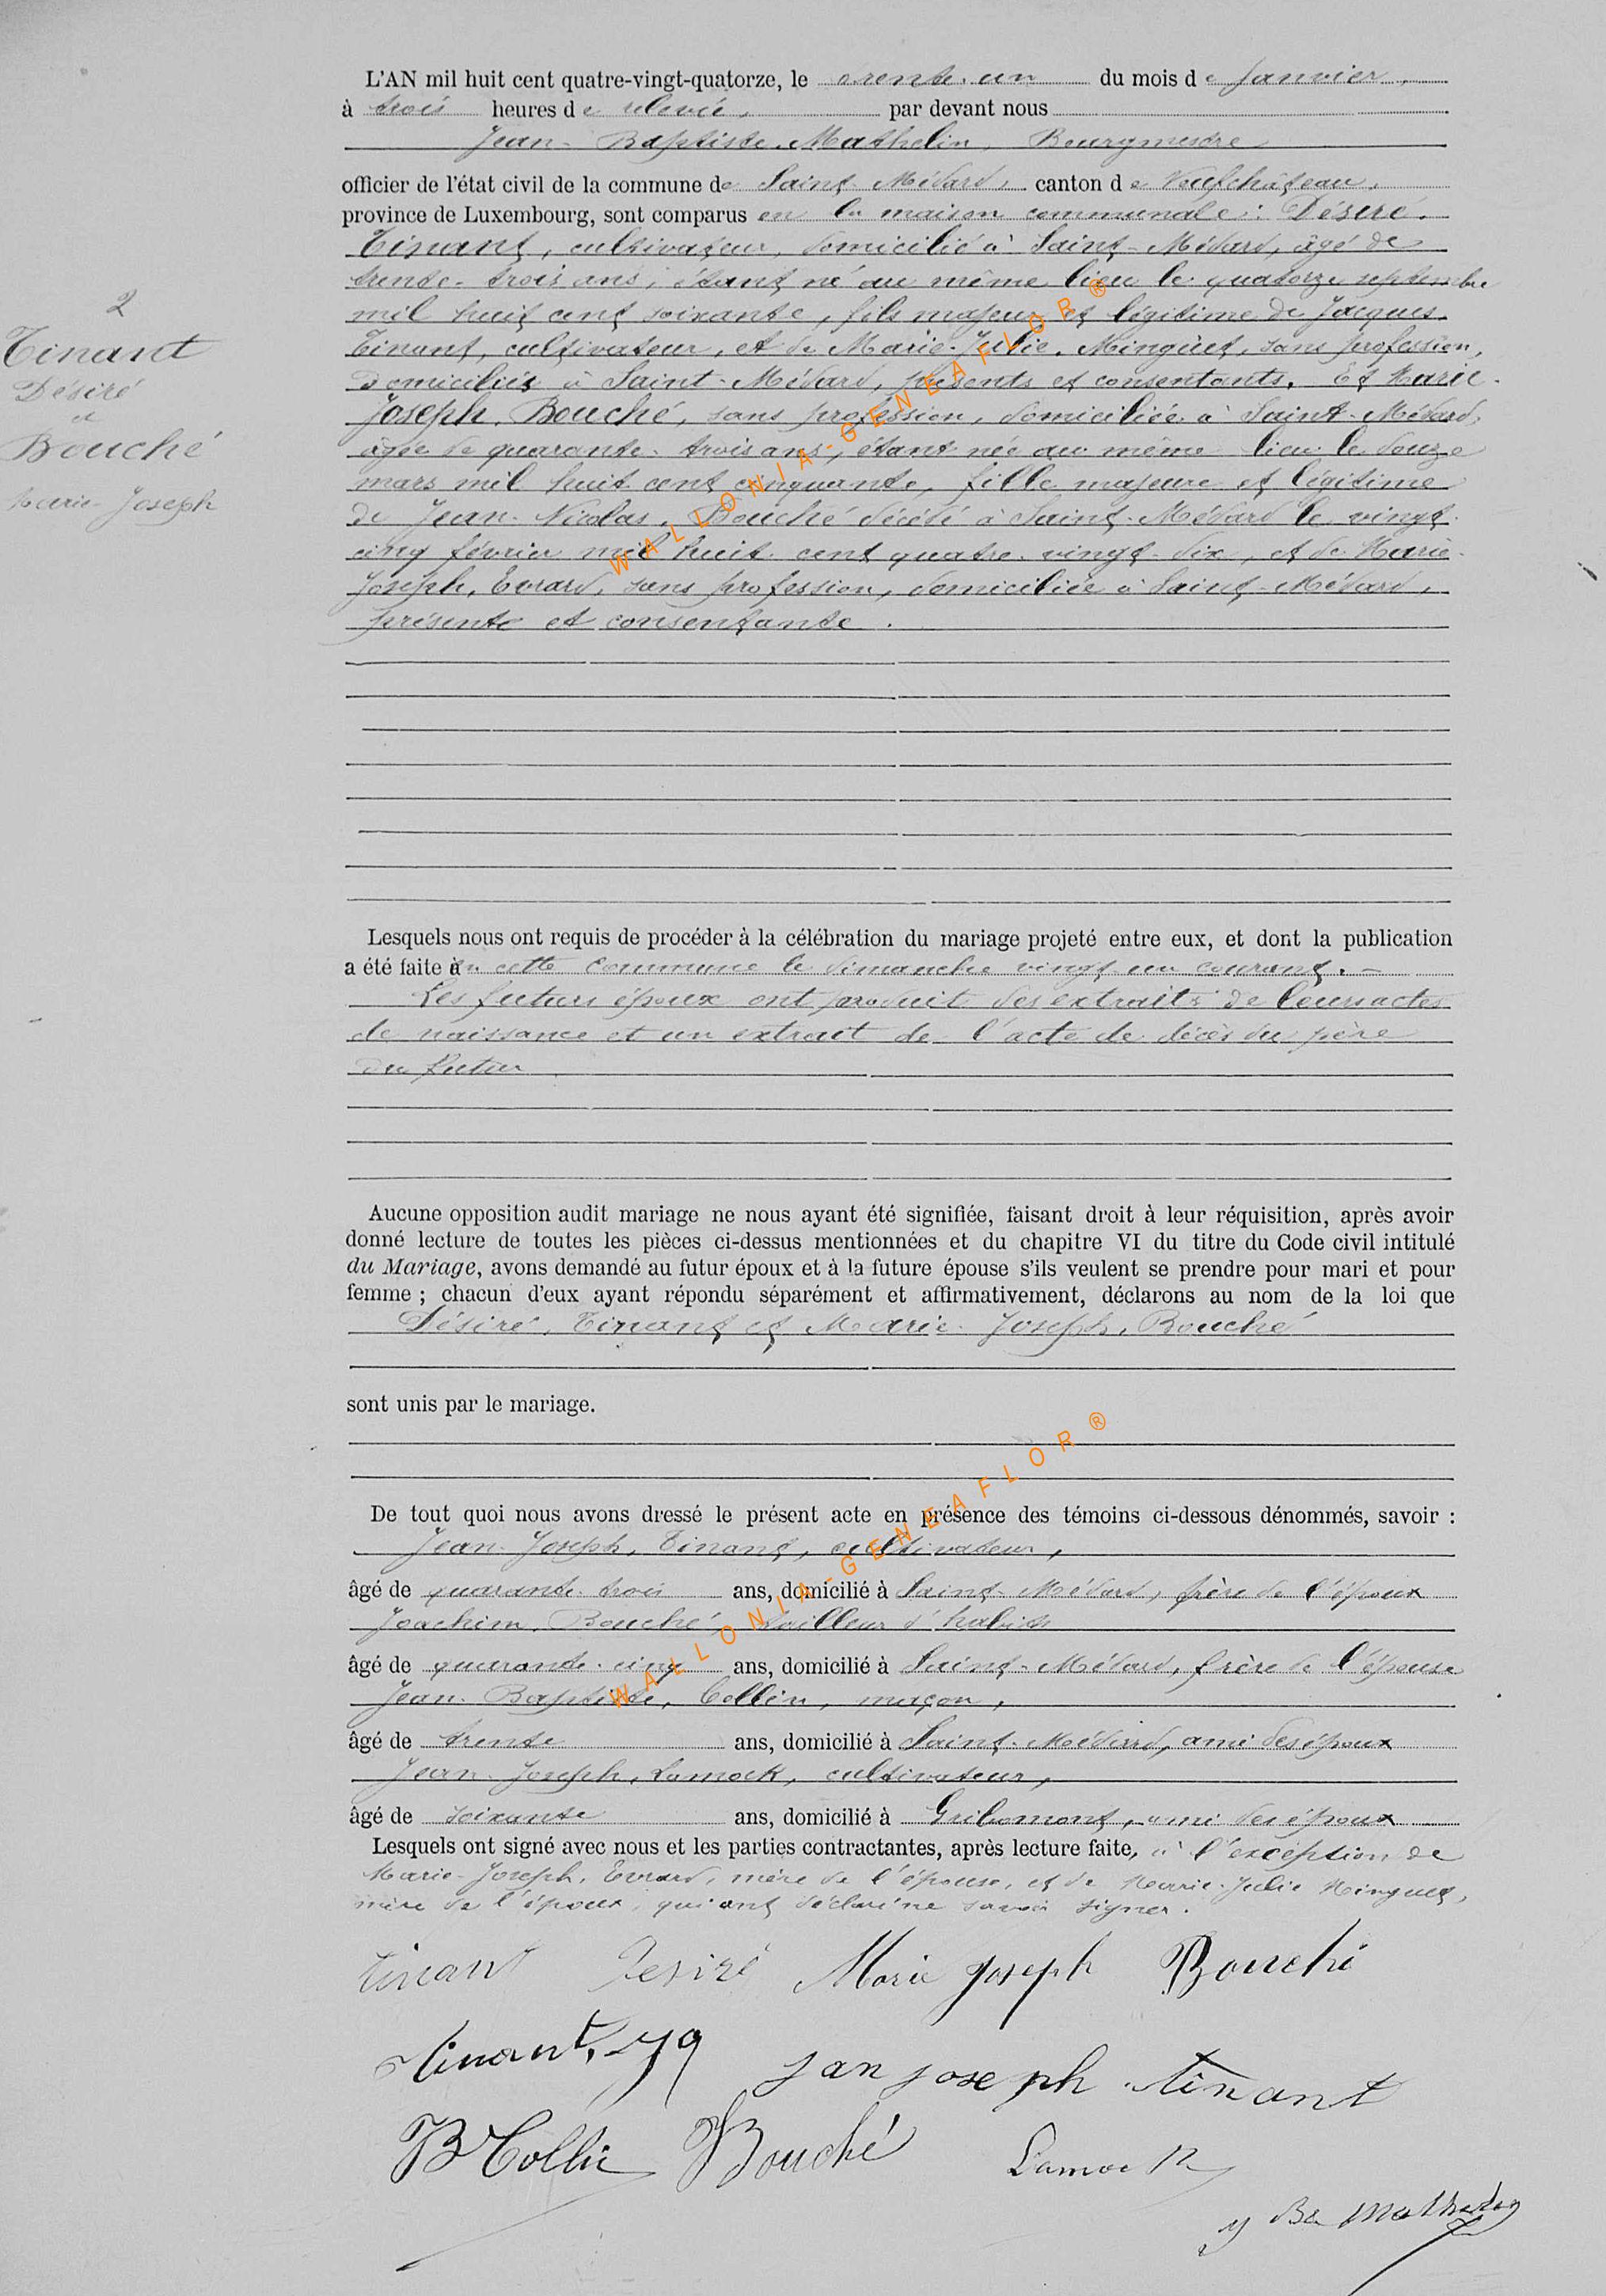 L'AN mil huit cent quatre-vingt-quatorze, le trente-un du mois de Janvier,
à trois heures de relevée, par devant nous
Jean-Baptiste, Mathelin, Bourgmestre
officier de l'état civil de la commune de Saint-Médard, canton de Neufchâteau,
province de Luxembourg, sont comparus en la maison communale : Désiré,
Tinant, cultivateur, domicilié à Saint-Médard, âgé de
trente-trois ans, étant né au même lieu le quatorze septembre
mil huit cent soixante, fils majeur et légitime de Jacques,
Tinant, cultivateur, et de Marie-Julie, Minguet, sans profession,
domiciliés à Saint-Médard, présents et consentants. Et Marie-
Joseph, Bouché, sans profession, domiciliée à Saint-Médard,
âgée de quarante-trois ans, étant née au même lieu le douze
mars mil huit cent cinquante, fille majeure et légitime
de Jean-Nicolas, Bouché décédé à Saint-Médard le vingt-
cinq février mil huit cent quatre-vingt-dix, et de Marie-
Joseph, Evrard, sans profession, domiciliée à Saint-Médard,
présente et consentante.
2
Tinant
Désiré
et
Bouché
Marie-Joseph
WALLONIA-GENEAFLOR®
Lesquels nous ont requis de procéder à la célébration du mariage projeté entre eux, et dont la publication
a été faite en cette commune le dimanche vingt-un courant. —
Les futurs époux ont produit des extraits de leurs actes
de naissance et un extrait de l'acte de décès du père
du futur
Aucune opposition audit mariage ne nous ayant été signifiée, faisant droit à leur réquisition, après avoir
donné lecture de toutes les pièces ci-dessus mentionnées et du chapitre VI du titre du Code civil intitulé
du Mariage, avons demandé au futur époux et à la future épouse s'ils veulent se prendre pour mari et pour
femme ; chacun d'eux ayant répondu séparément et affirmativement, déclarons au nom de la loi que
Désiré, Tinant et Marie-Joseph, Bouché
sont unis par le mariage.
De tout quoi nous avons dressé le présent acte en présence des témoins ci-dessous dénommés, savoir :
Jean-Joseph, Tinant, cultivateur,
âgé de quarante-trois ans, domicilié à Saint-Médard, frère de l'époux
Joachim, Bouché, tailleur d'habits
âgé de quarante-cinq ans, domicilié à Saint-Médard, frère de l'épouse
Jean-Baptiste, Collin, maçon,
âgé de trente ans, domicilié à Saint-Médard, ami des époux
Jean-Joseph, Lamock, cultivateur,
âgé de soixante ans, domicilié à Gribomont, ami des époux
WALLONIA-GENEAFLOR®
Lesquels ont signé avec nous et les parties contractantes, après lecture faite, à l'exception de
Marie-Joseph, Evrard, mère de l'épouse, et de Marie-Julie Minguet,
mère de l'époux, qui ont déclaré ne savoir signer.
tinant Desiré Marie joseph Bouché
tinant, J
jan joseph tinant
B Collin Bouché Lamock
J Bte Mathelin